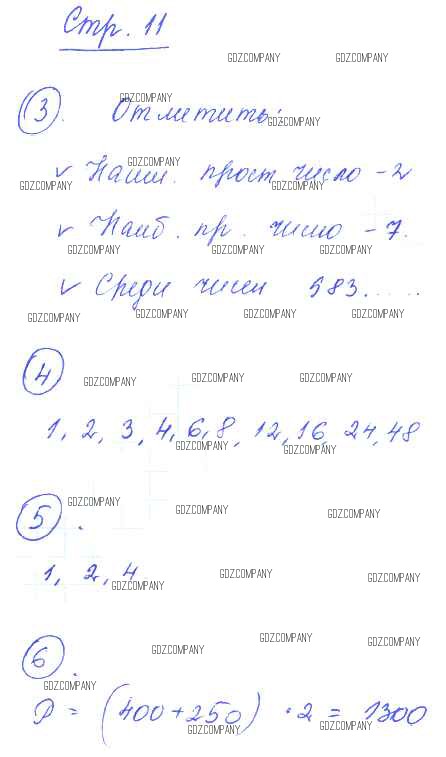 Стр. 11
GDZ.COMPANY GDZ.COMPANY
GDZ.COMPANY
3. Отметить:
GDZ.COMPANY
GDZ.COMPANY
v Наим. прост число - 2
GDZ.COMPANY GDZ.COMPANY
v Наиб. пр. число - 7.
GDZ.COMPANY GDZ.COMPANY GDZ.COMPANY
v Среди чисел 583......
GDZ.COMPANY GDZ.COMPANY GDZ.COMPANY GDZ.COMPANY
4
GDZ.COMPANY GDZ.COMPANY GDZ.COMPANY
1, 2, 3, 4, 6, 8, 12, 16, 24, 48
GDZ.COMPANY GDZ.COMPANY
5.
GDZ.COMPANY GDZ.COMPANY GDZ.COMPANY
1, 2, 4
GDZ.COMPANY GDZ.COMPANY GDZ.COMPANY
6.
GDZ.COMPANY GDZ.COMPANY GDZ.COMPANY
GDZ.COMPANY
P = (400 + 250) · 2 = 1300
GDZ.COMPANY GDZ.COMPANY